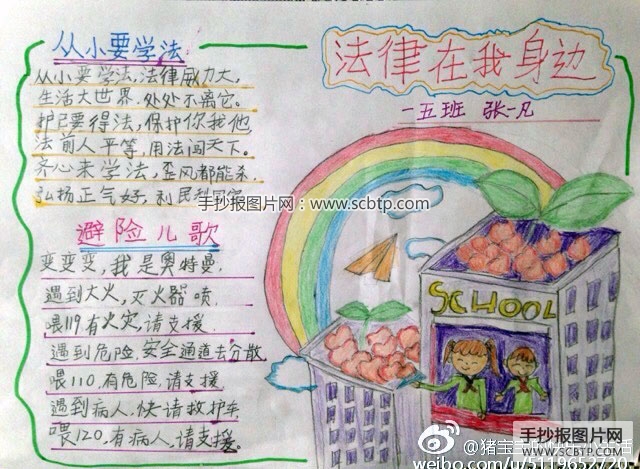 从小要学法
从小要学法,法律威力大,
生活大世界.处处不离它。
护己要得法,保护你我他
法前人平等,用法闯天下。
齐心来学法,歪风都能杀.
弘扬正气好,利民
手抄报图片网:www.scbtp.com
避险儿歌
变变变,我是奥特曼.
遇到大火,灭火器喷.
喂119有火灾,请支援.
遇到危险,安全通道去分散
喂110.有危险,请支援
遇到病人.快请救护车
喂120.有病人,请支援。
法律在我身边
一五班 张一凡
SCHOOL
手抄报图片网
WWW.SCBTP.COM
weibo.com/u/5119652720